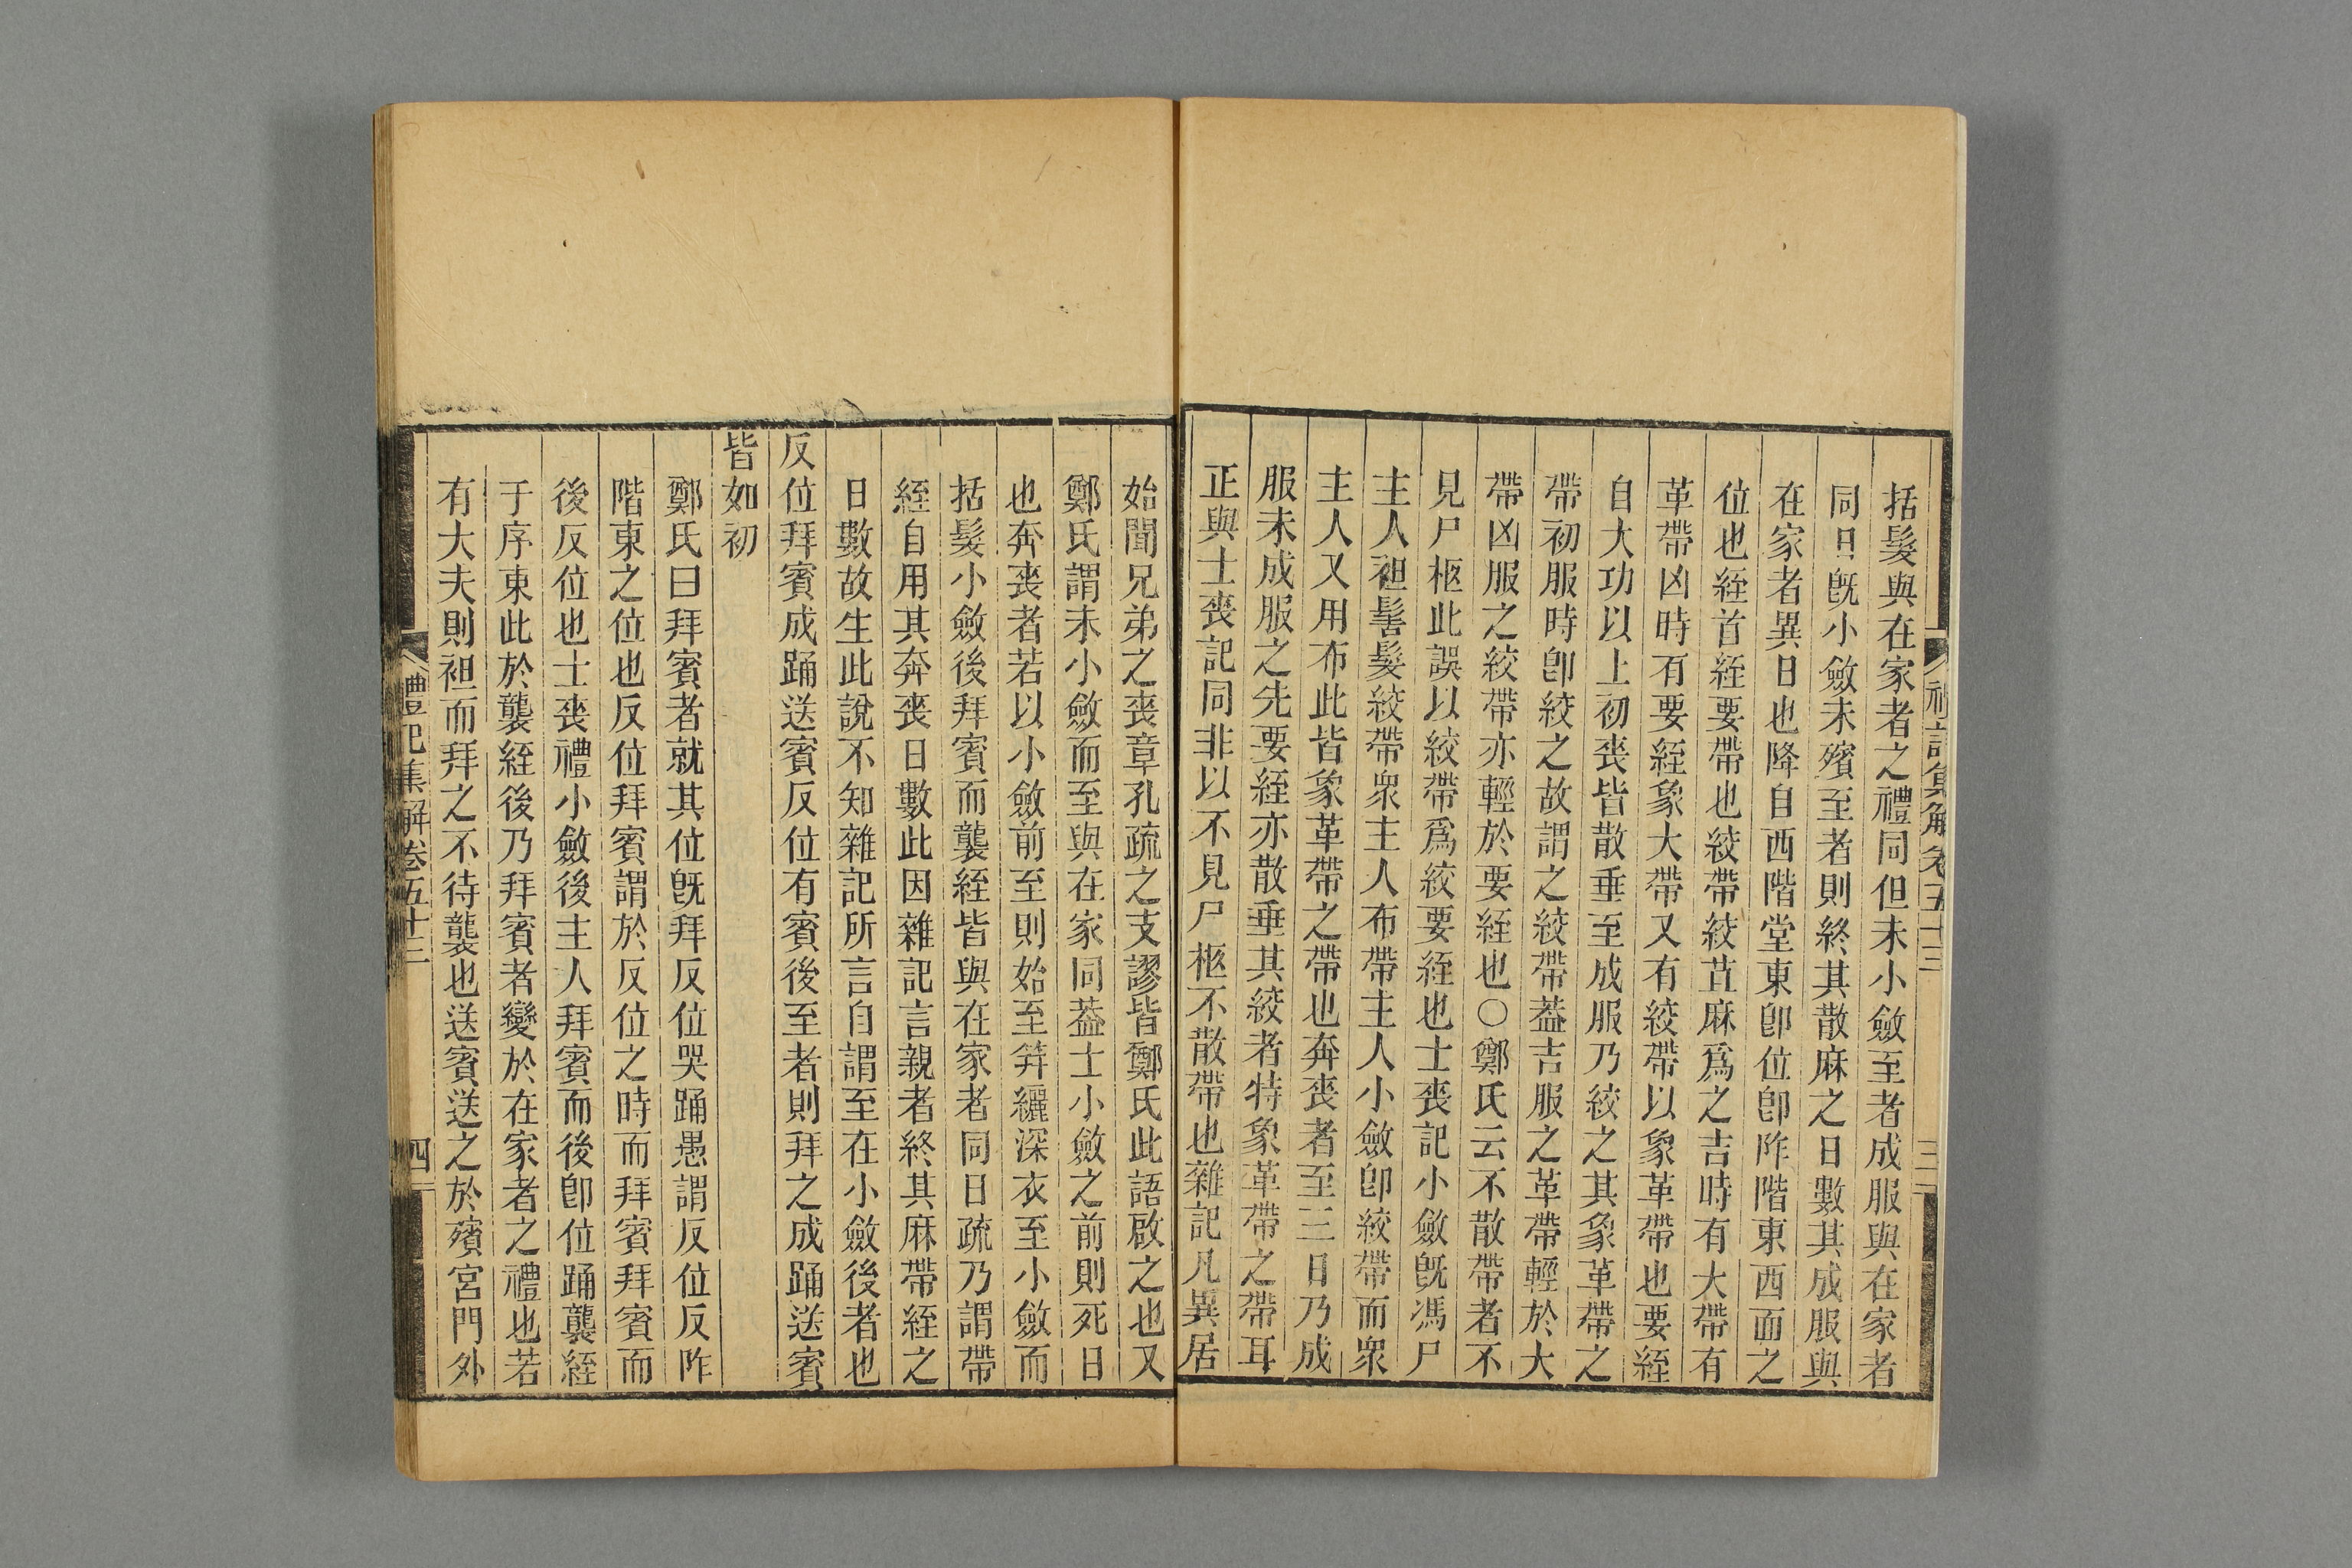 括髮與在家者之禮同但未小斂至者成服與在家者
同日旣小斂未殯至者則終其散麻之日數其成服與
在家者異日也降自西階堂東卽位卽阼階東西面之
位也絰首絰要帶也絞帶絞苴麻爲之吉時有大帶有
革帶凶時有要絰象大帶又有絞帶以象革帶也要絰
自大功以上初喪皆散垂至成服乃絞之其象革帶之
帶初服時卽絞之故謂之絞帶葢吉服之革帶輕於大
帶凶服之絞帶亦輕於要絰也○鄭氏云不散帶者不
見尸柩此誤以絞帶爲絞要絰也士喪記小斂旣馮尸
主人袒髺髮絞帶衆主人布帶主人小斂卽絞帶而衆
主人又用布此皆象革帶之帶也奔喪者至三日乃成
服未成服之先要絰亦散垂其絞者特象革帶之帶耳
正與士喪記同非以不見尸柩不散帶也雜記凡異居
始聞兄弟之喪章孔疏之支謬皆鄭氏此語啟之也又
鄭氏謂未小斂而至與在家同葢士小斂之前則死日
也奔喪者若以小斂前至則始至筓纚深衣至小斂而
括髮小斂後拜賓而襲絰皆與在家者同日疏乃謂帶
絰自用其奔喪日數此因雜記言親者終其麻帶絰之
日數故生此說不知雜記所言自謂至在小斂後者也
反位拜賓成踊送賓反位有賓後至者則拜之成踊送賓
皆如初
鄭氏曰拜賓者就其位旣拜反位哭踊愚謂反位反阼
階東之位也反位拜賓謂於反位之時而拜賓拜賓而
後反位也士喪禮小斂後主人拜賓而後卽位踊襲絰
于序東此於襲絰後乃拜賓者變於在家者之禮也若
有大夫則袒而拜之不待襲也送賓送之於殯宮門外
禮記集解卷五十三
四